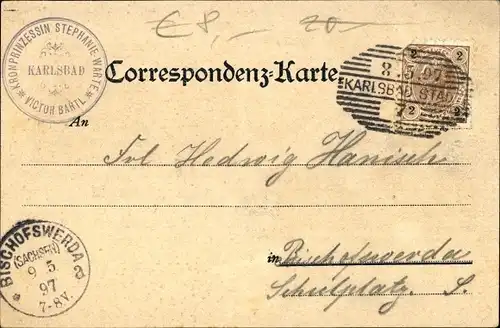 € 8,– 20–
KRONPRINZESSIN STEPHANIE WARTE
KARLSBAD
VICTOR BARTL
Correspondenz-Karte
2 2
8.5.97
KARLSBAD STADT
2 2
An
Frl Hedwig Hanisch
in Bischofswerda
Schulplatz. S.
BISCHOFSWERDA
(SACHSEN)
9 5
97
7-8V.
a